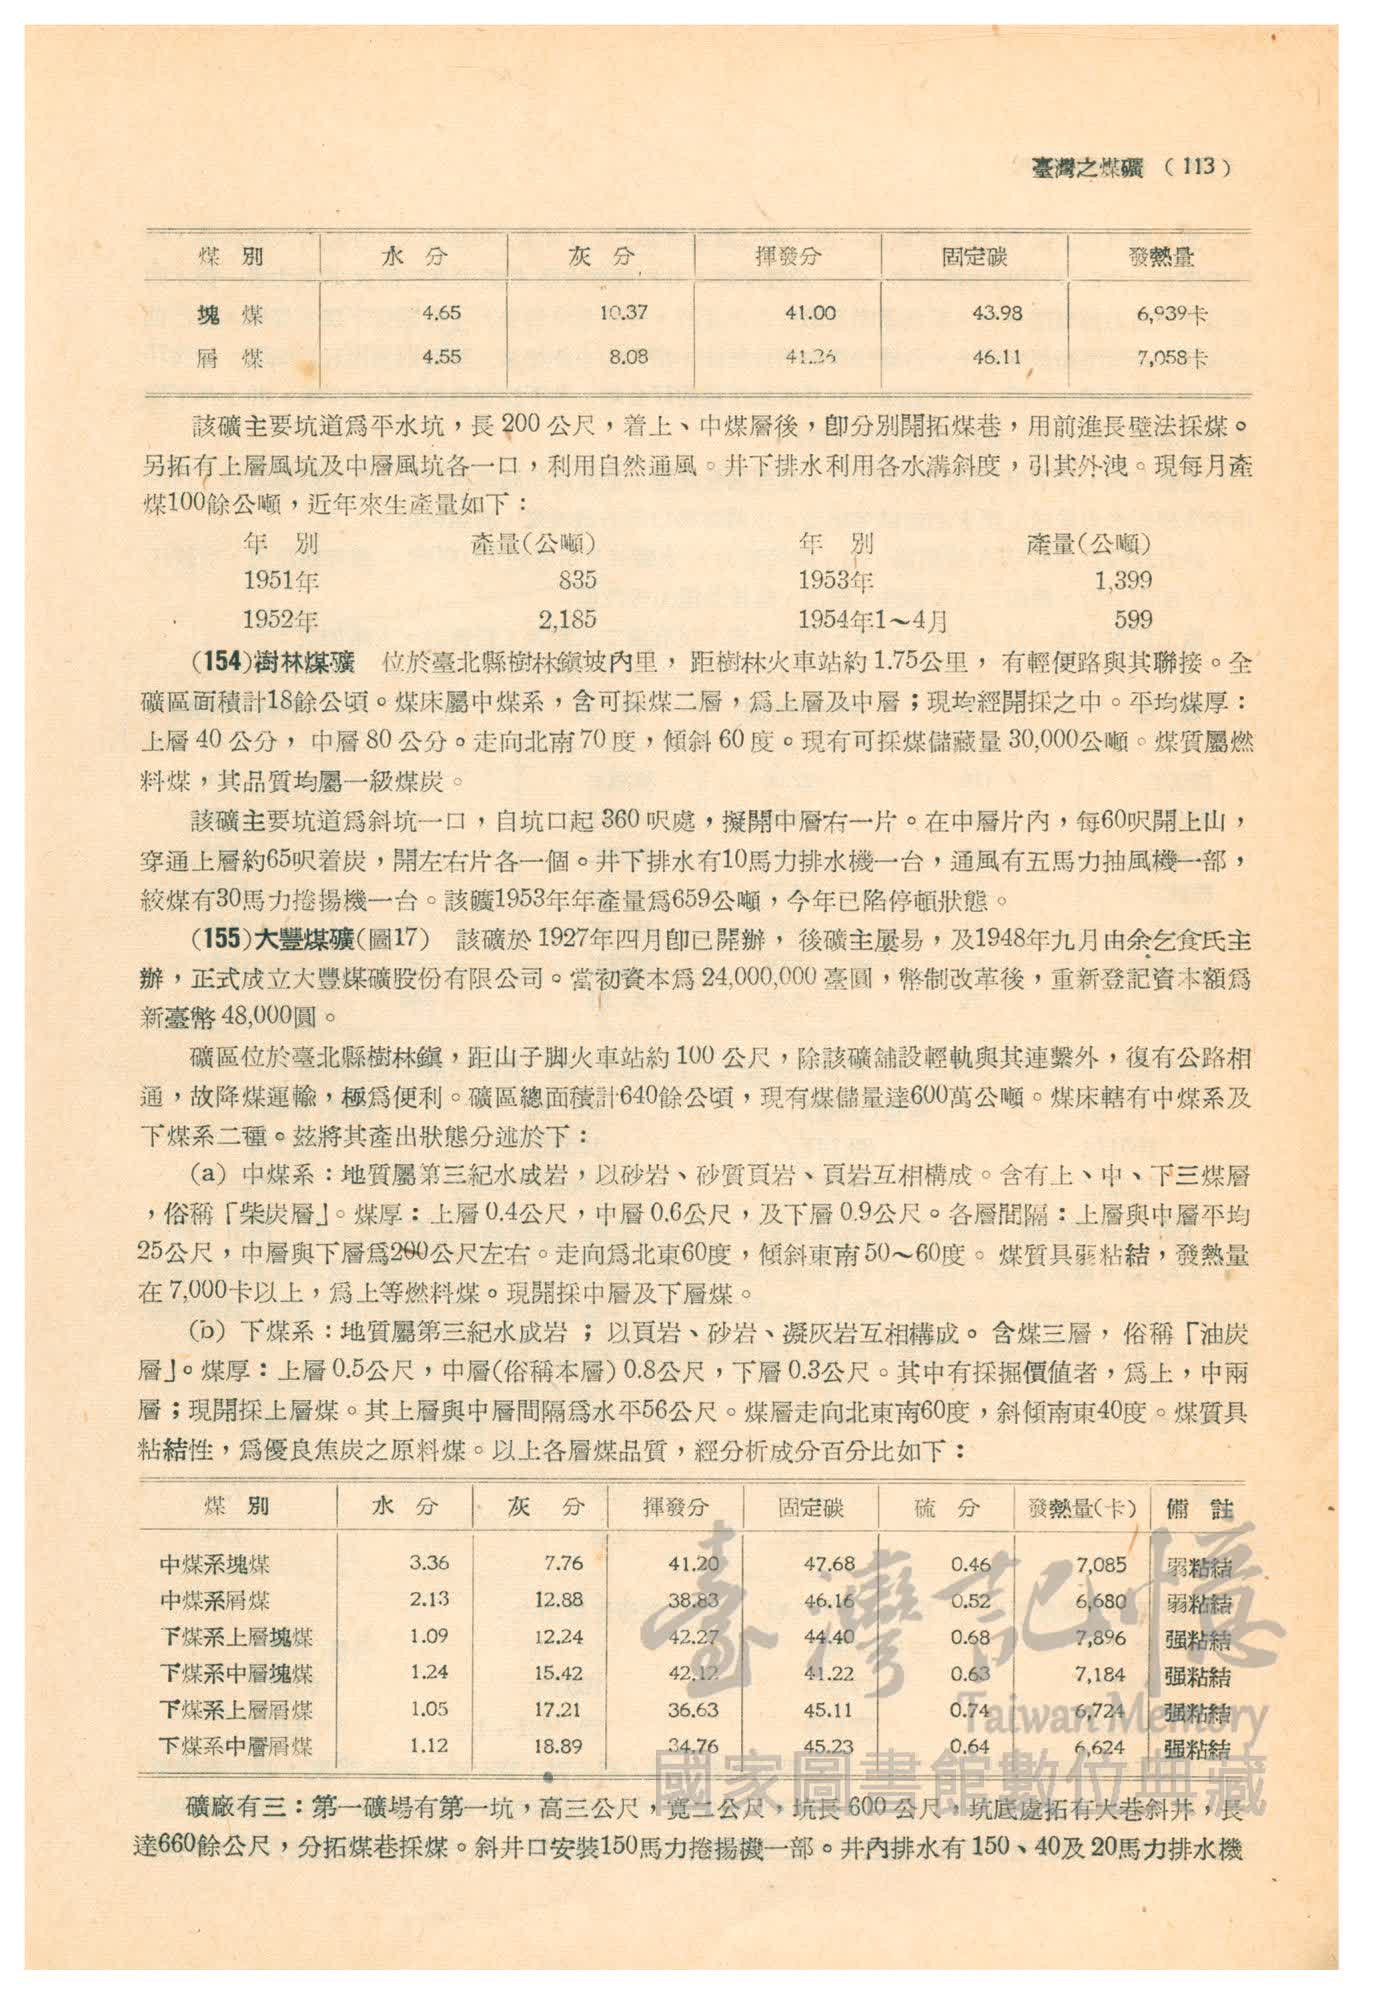 臺灣之煤礦 （113）
煤 別 水 分 灰 分 揮發分 固定碳 發熱量
塊 煤 4.65 10.37 41.00 43.98 6,939卡
屑 煤 4.55 8.08 41.26 46.11 7,058卡
該礦主要坑道爲平水坑，長 200 公尺，着上、中煤層後，卽分別開拓煤巷，用前進長壁法採煤。
另拓有上層風坑及中層風坑各一口，利用自然通風。井下排水利用各水溝斜度，引其外洩。現每月產
煤100餘公噸，近年來生產量如下：
年 別 產量(公噸) 年 別 產量(公噸)
1951年 835 1953年 1,399
1952年 2,185 1954年1～4月 599
(154)樹林煤礦 位於臺北縣樹林鎭坡內里， 距樹林火車站約 1.75公里， 有輕便路與其聯接。全
礦區面積計18餘公頃。煤床屬中煤系，含可採煤二層，爲上層及中層；現均經開採之中。平均煤厚：
上層 40 公分， 中層 80 公分。走向北南 70 度，傾斜 60 度。現有可採煤儲藏量 30,000公噸。煤質屬燃
料煤，其品質均屬一級煤炭。
該礦主要坑道爲斜坑一口，自坑口起 360 呎處，擬開中層右一片。在中層片內，每60呎開上山，
穿通上層約65呎着炭，開左右片各一個。井下排水有10馬力排水機一台，通風有五馬力抽風機一部，
絞煤有30馬力捲揚機一台。該礦1953年年產量爲659公噸，今年已陷停頓狀態。
(155)大豐煤礦(圖17) 該礦於 1927年四月卽已開辦， 後礦主屢易，及1948年九月由余乞食氏主
辦，正式成立大豐煤礦股份有限公司。當初資本爲 24,000,000 臺圓，幣制改革後，重新登記資本額爲
新臺幣 48,000圓。
礦區位於臺北縣樹林鎭，距山子脚火車站約 100 公尺，除該礦舖設輕軌與其連繫外，復有公路相
通，故降煤運輸，極爲便利。礦區總面積計640餘公頃，現有煤儲量達600萬公噸。煤床轄有中煤系及
下煤系二種。玆將其產出狀態分述於下：
(a) 中煤系：地質屬第三紀水成岩，以砂岩、砂質頁岩、頁岩互相構成。含有上、中、下三煤層
，俗稱「柴炭層」。煤厚：上層 0.4公尺，中層 0.6公尺，及下層 0.9公尺。各層間隔：上層與中層平均
25公尺，中層與下層爲200公尺左右。走向爲北東60度，傾斜東南 50～60度。 煤質具弱粘結，發熱量
在 7,000卡以上，爲上等燃料煤。現開採中層及下層煤。
(b) 下煤系：地質屬第三紀水成岩 ；以頁岩、砂岩、凝灰岩互相構成。 含煤三層， 俗稱「油炭
層」。煤厚：上層 0.5公尺，中層(俗稱本層) 0.8公尺，下層 0.3公尺。其中有採掘價値者，爲上，中兩
層；現開採上層煤。其上層與中層間隔爲水平56公尺。煤層走向北東南60度，斜傾南東40度。煤質具
粘結性，爲優良焦炭之原料煤。以上各層煤品質，經分析成分百分比如下：
煤 別 水 分 灰 分 揮發分 固定碳 硫 分 發熱量(卡) 備 註
中煤系塊煤 3.36 7.76 41.20 47.68 0.46 7,085 弱粘結
中煤系屑煤 2.13 12.88 38.83 46.16 0.52 6,680 弱粘結
下煤系上層塊煤 1.09 12.24 42.27 44.40 0.68 7,896 强粘結
下煤系中層塊煤 1.24 15.42 42.12 41.22 0.63 7,184 强粘結
下煤系上層屑煤 1.05 17.21 36.63 45.11 0.74 6,724 强粘結
下煤系中層屑煤 1.12 18.89 34.76 45.23 0.64 6,624 强粘結
礦廠有三：第一礦場有第一坑，高三公尺，寬二公尺，坑長 600 公尺，坑底處拓有大巷斜井，長
達660餘公尺，分拓煤巷採煤。斜井口安裝150馬力捲揚機一部。井內排水有 150、40及 20馬力排水機
臺灣記憶
Taiwan Memory
國家圖書館數位典藏